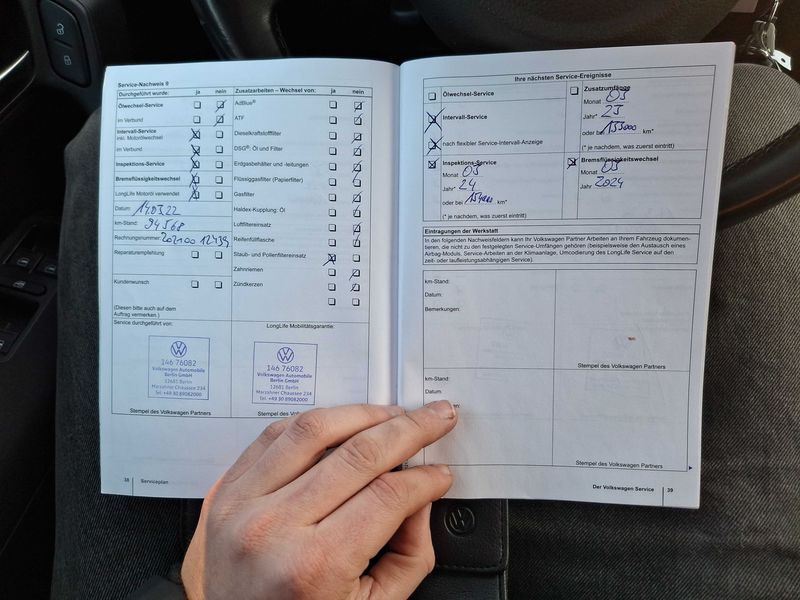 Service-Nachweis 9
Durchgeführt wurde: ja nein
Ölwechsel-Service
im Verbund
Intervall-Service
inkl. Motorölwechsel
im Verbund
Inspektions-Service
Bremsflüssigkeitswechsel
LongLife Motoröl verwendet
Datum 14.03.22
km-Stand: 94568
Rechnungsnummer:
Reparaturempfehlung
Kundenwunsch
(Diesen bitte auch auf dem
Auftrag vermerken.)
Zusatzarbeiten – Wechsel von: ja nein
AdBlue®
ATF
Dieselkraftstofffilter
DSG®: Öl und Filter
Erdgasbehälter und -leitungen
Flüssiggasfilter (Papierfilter)
Gasfilter
Haldex-Kupplung: Öl
Luftfiltereinsatz
Reifenfüllflasche
Staub- und Pollenfiltereinsatz
Zahnriemen
Zündkerzen
Service durchgeführt von:
146 76082
Volkswagen Automobile
Berlin GmbH
12681 Berlin
Marzahner Chaussee 234
Tel. +49 30 89082000
Stempel des Volkswagen Partners
LongLife Mobilitätsgarantie:
146 76082
Volkswagen Automobile
Berlin GmbH
12681 Berlin
Marzahner Chaussee 234
Tel. +49 30 89082000
Stempel des Volkswagen Partners
38 Serviceplan
Ihre nächsten Service-Ereignisse
Ölwechsel-Service
Intervall-Service
nach flexibler Service-Intervall-Anzeige
Inspektions-Service
Monat 03
Jahr* 24
oder bei 154000 km*
(* je nachdem, was zuerst eintritt)
Zusatzumfänge
Monat 03
Jahr* 25
oder bei 153000 km*
(* je nachdem, was zuerst eintritt)
Bremsflüssigkeitswechsel
Monat 03
Jahr 2024
Eintragungen der Werkstatt
In den folgenden Nachweisfeldern kann Ihr Volkswagen Partner Arbeiten an Ihrem Fahrzeug dokumen-
tieren, die nicht zu den festgelegten Service-Umfängen gehören (beispielsweise den Austausch eines
Airbag-Moduls, Service-Arbeiten an der Klimaanlage, Umcodierung des LongLife Service auf den
zeit- oder laufleistungsabhängigen Service).
km-Stand:
Datum:
Bemerkungen:
Stempel des Volkswagen Partners
km-Stand:
Datum:
Stempel des Volkswagen Partners
Der Volkswagen Service 39